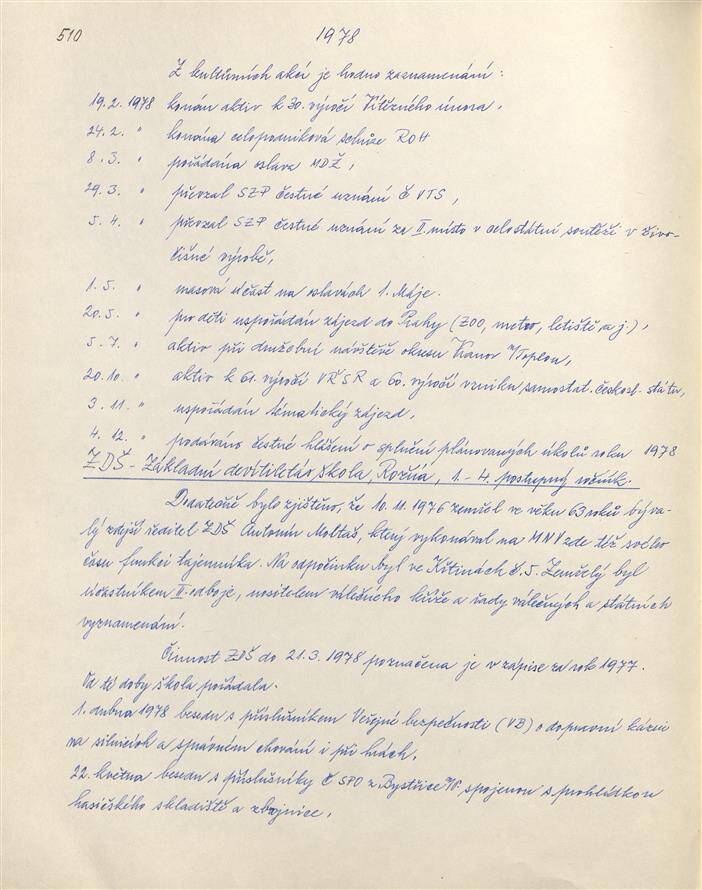 510 1978
Z kulturních akcí je hodno zaznamenání:
19.2. 1978 konán aktiv k 30. výročí Vítězného února,
24.2. " konána celopodniková schůze ROH
8. 3. " pořádána oslava MDŽ,
29.3. " převzal SZP čestné uznání Č VTS,
5. 4. " převzal SZP čestné uznání za II. místo v celostátní soutěži v živo-
čišné výrobě,
1. 5. " masová účast na oslavách 1. Máje.
20.5. " pro děti uspořádán zájezd do Prahy (ZOO, metro, letiště a j.),
5. 7. " aktiv při družební návštěvě okresu
20.10. " aktiv k 61. výročí VŘSR a 60. výročí vzniku samostat. českosl. státu,
3. 11. " uspořádán tématický zájezd,
4. 12. " podáváno čestné hlášení o splnění plánovaných úkolů roku 1978
ZDŠ - Základní devítiletá škola, Rožná, 1.-4. postupný ročník.
Dodatečně bylo zjištěno, že 10.11.1976 zemřel ve věku 63 roků býva-
lý zdejší ředitel ZDŠ Antonín Moltaš, který vykonával na MNV zde též svého
času funkci tajemníka. Na odpočinku byl ve Křtinách č. 5. Zemřelý byl
účastníkem II. odboje, nositelem válečného kříže a řady válečných a státních
vyznamenání.
Činnost ZDŠ do 21.3.1978 poznačena je v zápise za rok 1977.
Od té doby škola pořádala.
1. dubna 1978 besedu s příslušníkem Veřejné bezpečnosti (VB) o dopravní kázni
na silnicích a správném chování i při hrách.
22. května besedu s příslušníky Č SPO z Bystřice n/P. spojenou s prohlídkou
hasičského skladiště a zbrojnice.